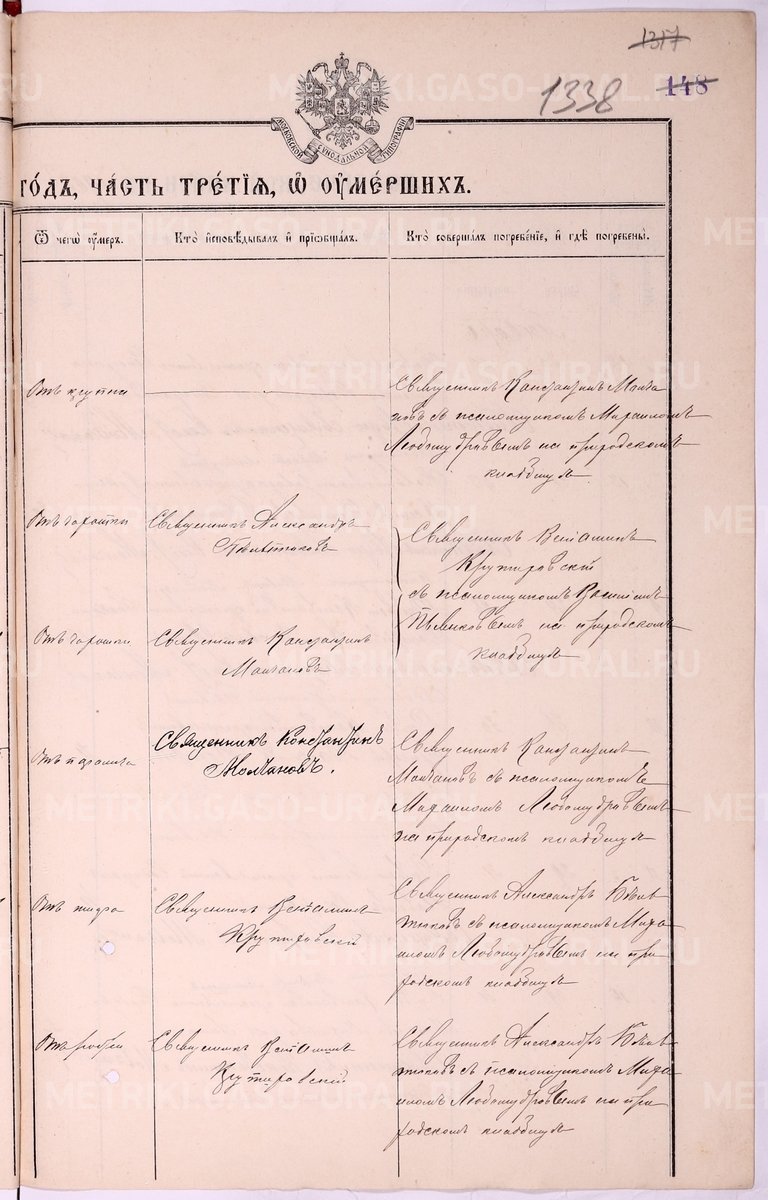 1317
1338
148
МОСКОВСКОЙ СѴНОДАЛЬНОЙ ТИПОГРАФІИ
го́дъ, ча́сть тре́тїѧ, ѡ҆ ᲂу҆ме́ршихъ.
Ѿ чегѡ̀ ᲂу҆́меръ.
Кто̀ и҆сповѣ́дывалъ и҆ прїѡбща́лъ.
Кто̀ соверша́лъ погребе́нїе, и҆ гдѣ̀ погребены̀.
Отъ
Священникъ Константинъ Молча
новъ съ псаломщикомъ Михаиломъ
Любомудровымъ на приходскомъ
кладбищѣ
Отъ чахотки
Священникъ Александръ
Священникъ Веніаминъ
Крутировскій
съ псаломщикомъ Василіемъ
на приходскомъ
кладбищѣ
Отъ чахотки
Священникъ Константинъ
Молчановъ
Отъ паралича
Священникъ Константинъ
Молчановъ.
Священникъ Константинъ
Молчановъ съ псаломщикомъ
Михаиломъ Любомудровымъ
на приходскомъ кладбищѣ
Отъ тифа
Священникъ Веніаминъ
Крутировскій
Священникъ Александръ
съ псаломщикомъ Миха
иломъ Любомудровымъ на при
ходскомъ кладбищѣ
Отъ
Священникъ Веніаминъ
Крутировскій
Священникъ Александръ
съ псаломщикомъ Миха
иломъ Любомудровымъ на при
ходскомъ кладбищѣ
METRIKI.GASO-URAL.RU